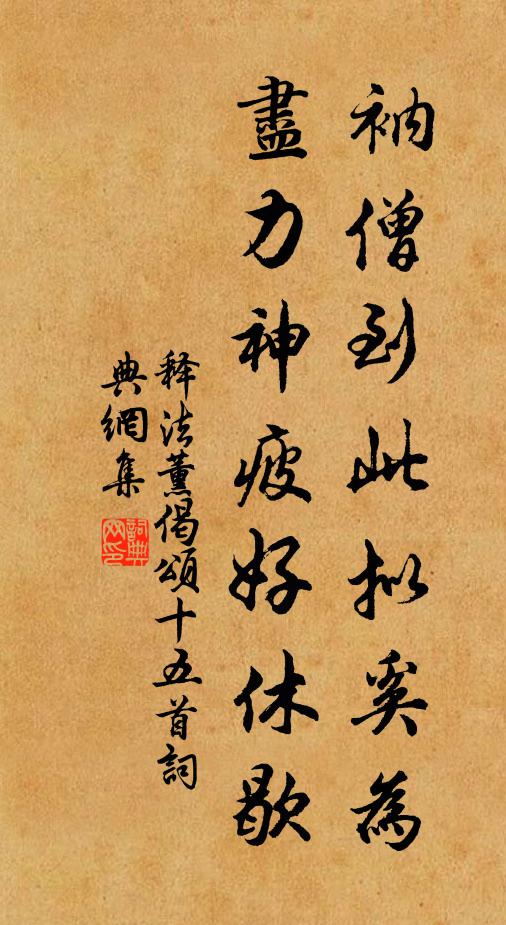 衲僧到此拟奚為
盡力神疲好休歇
释法薰偈頌十五首詞
典網集
詞典
网印